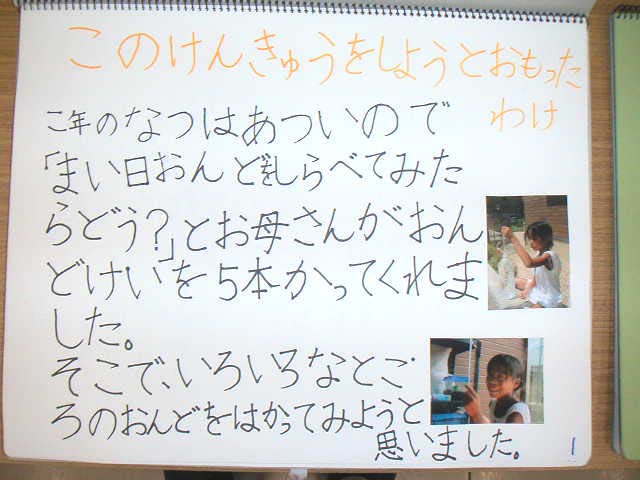 このけんきゅうをしようとおもった
わけ
こ年のなつはあついので
「まい日おんどをしらべてみた
らどう?」とお母さんがおん
どけいを5本かってくれま
した。
そこで、いろいろなとこ
ろのおんどをはかってみようと
思いました。
1